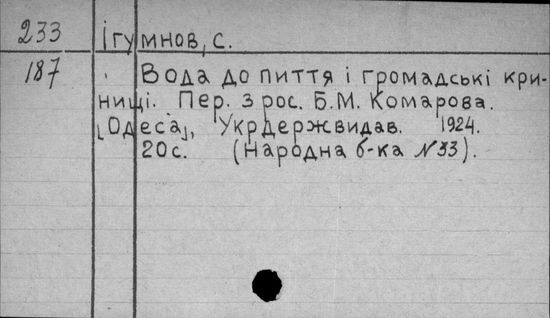 233 Ігумнов, С.
187 Вода до пиття і громадські кри-
ниці. Пер. з рос. Б.М. Комарова.
[Одеса], Укрдержвидав. 1924.
20с. (Народна б-ка №33).